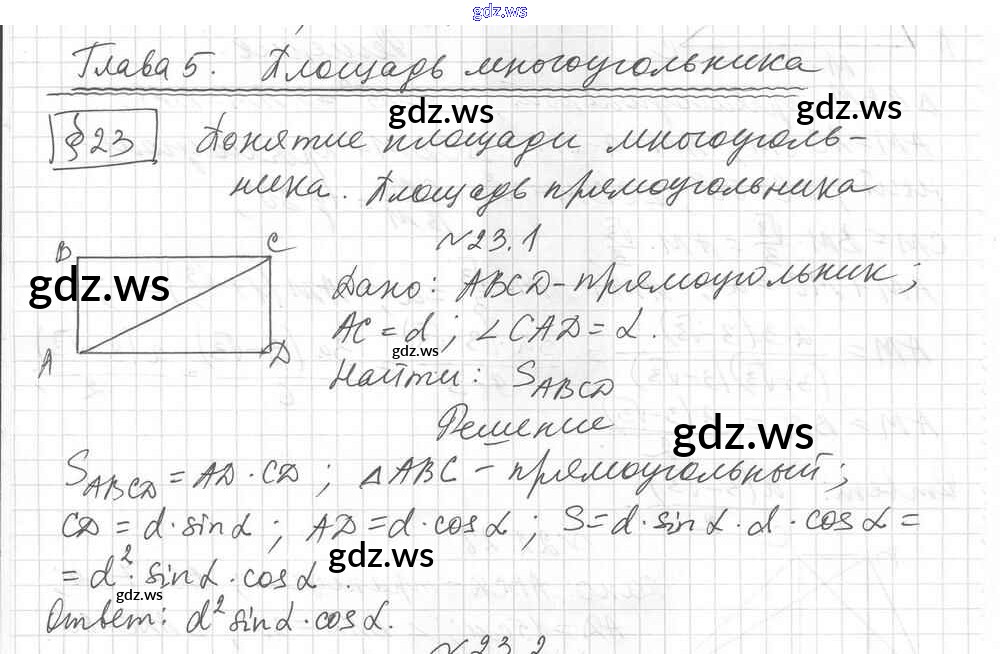 gdz.ws
Глава 5. Площадь многоугольника
gdz.ws
gdz.ws
§ 23 Понятие площади многоуголь-
ника. Площадь прямоугольника
№23.1
B C
gdz.ws
Дано: ABCD - прямоугольник;
AC = d; ∠CAD = α.
gdz.ws
A D
Найти: S_ABCD
Решение
gdz.ws
S_ABCD = AD · CD; △ABC - прямоугольный;
CD = d · sin α; AD = d · cos α; S = d · sin α · d · cos α =
gdz.ws
= d² · sin α · cos α.
gdz.ws
Ответ: d² sin α · cos α.
№23.2